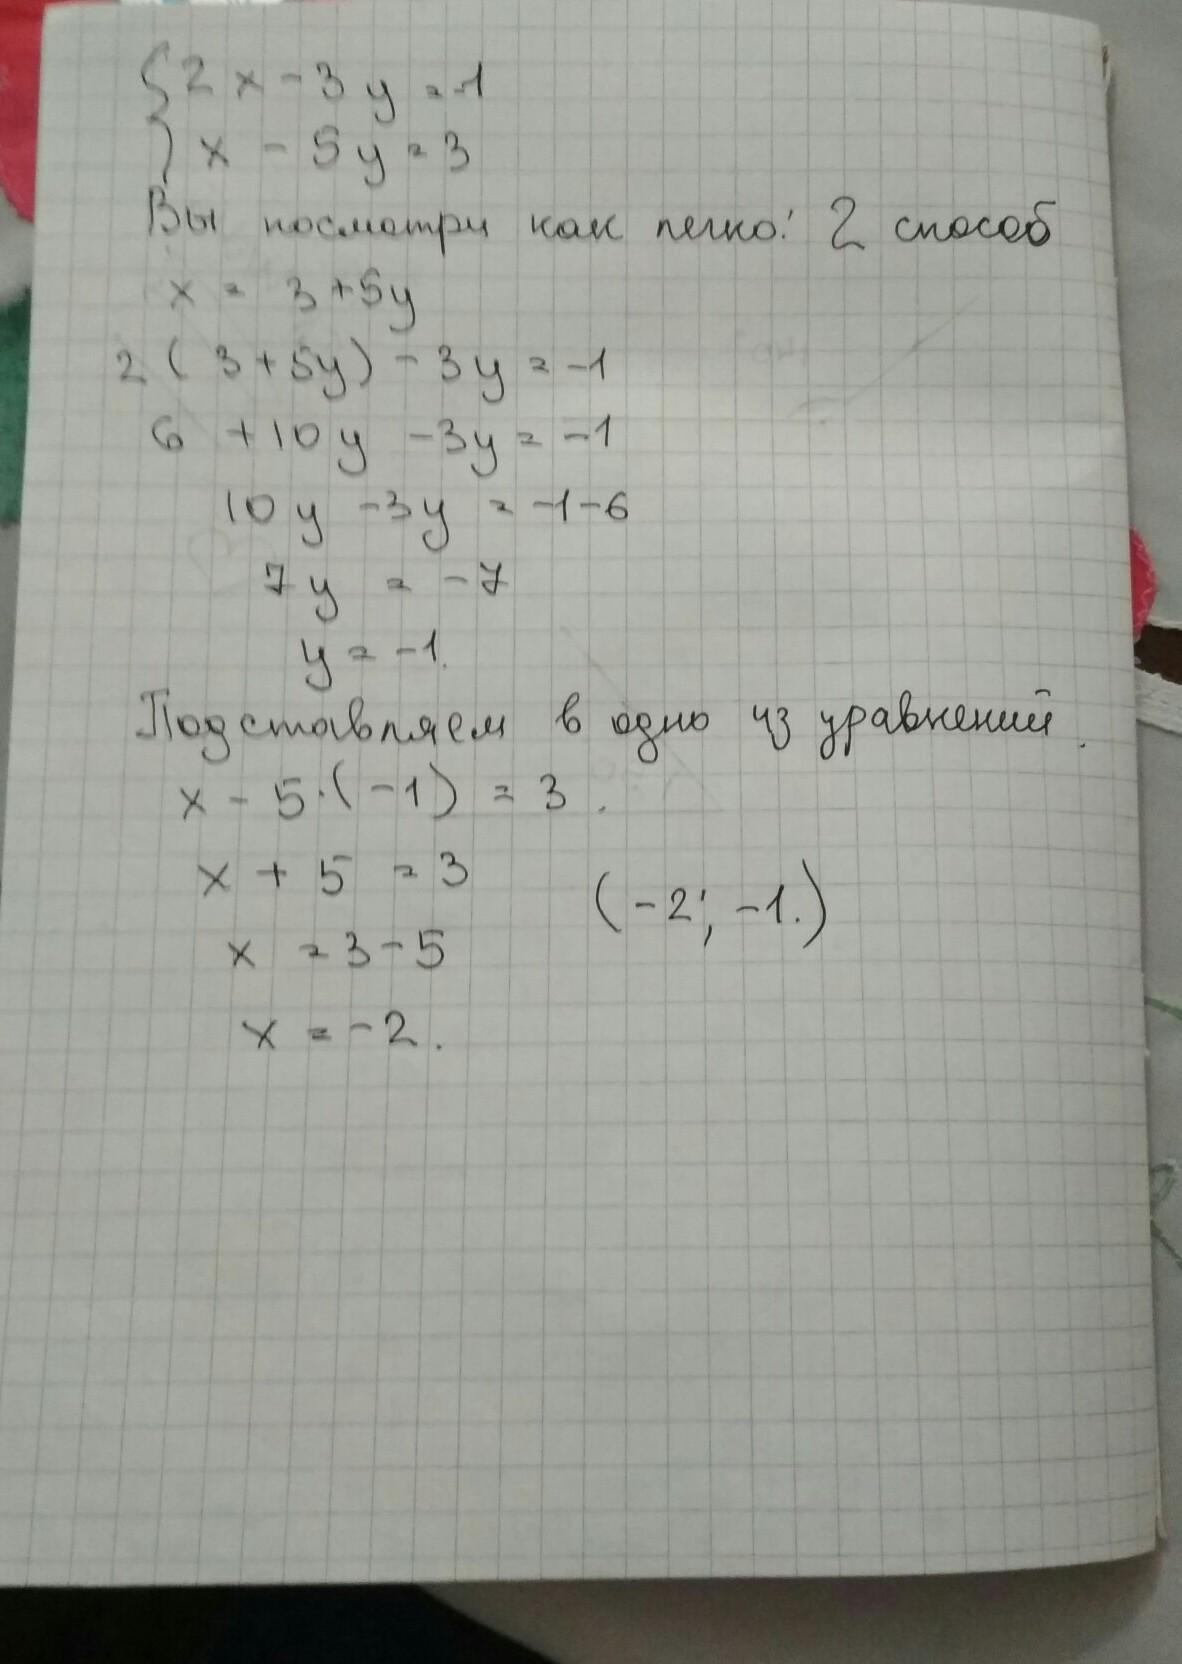 {2x - 3y = -1
x - 5y = 3
Вы посмотри как легко! 2 способ
x = 3 + 5y
2(3 + 5y) - 3y = -1
6 + 10y - 3y = -1
10y - 3y = -1 - 6
7y = -7
y = -1.
Подставляем в одно из уравнений.
x - 5·(-1) = 3.
x + 5 = 3
(-2; -1.)
x = 3 - 5
x = -2.